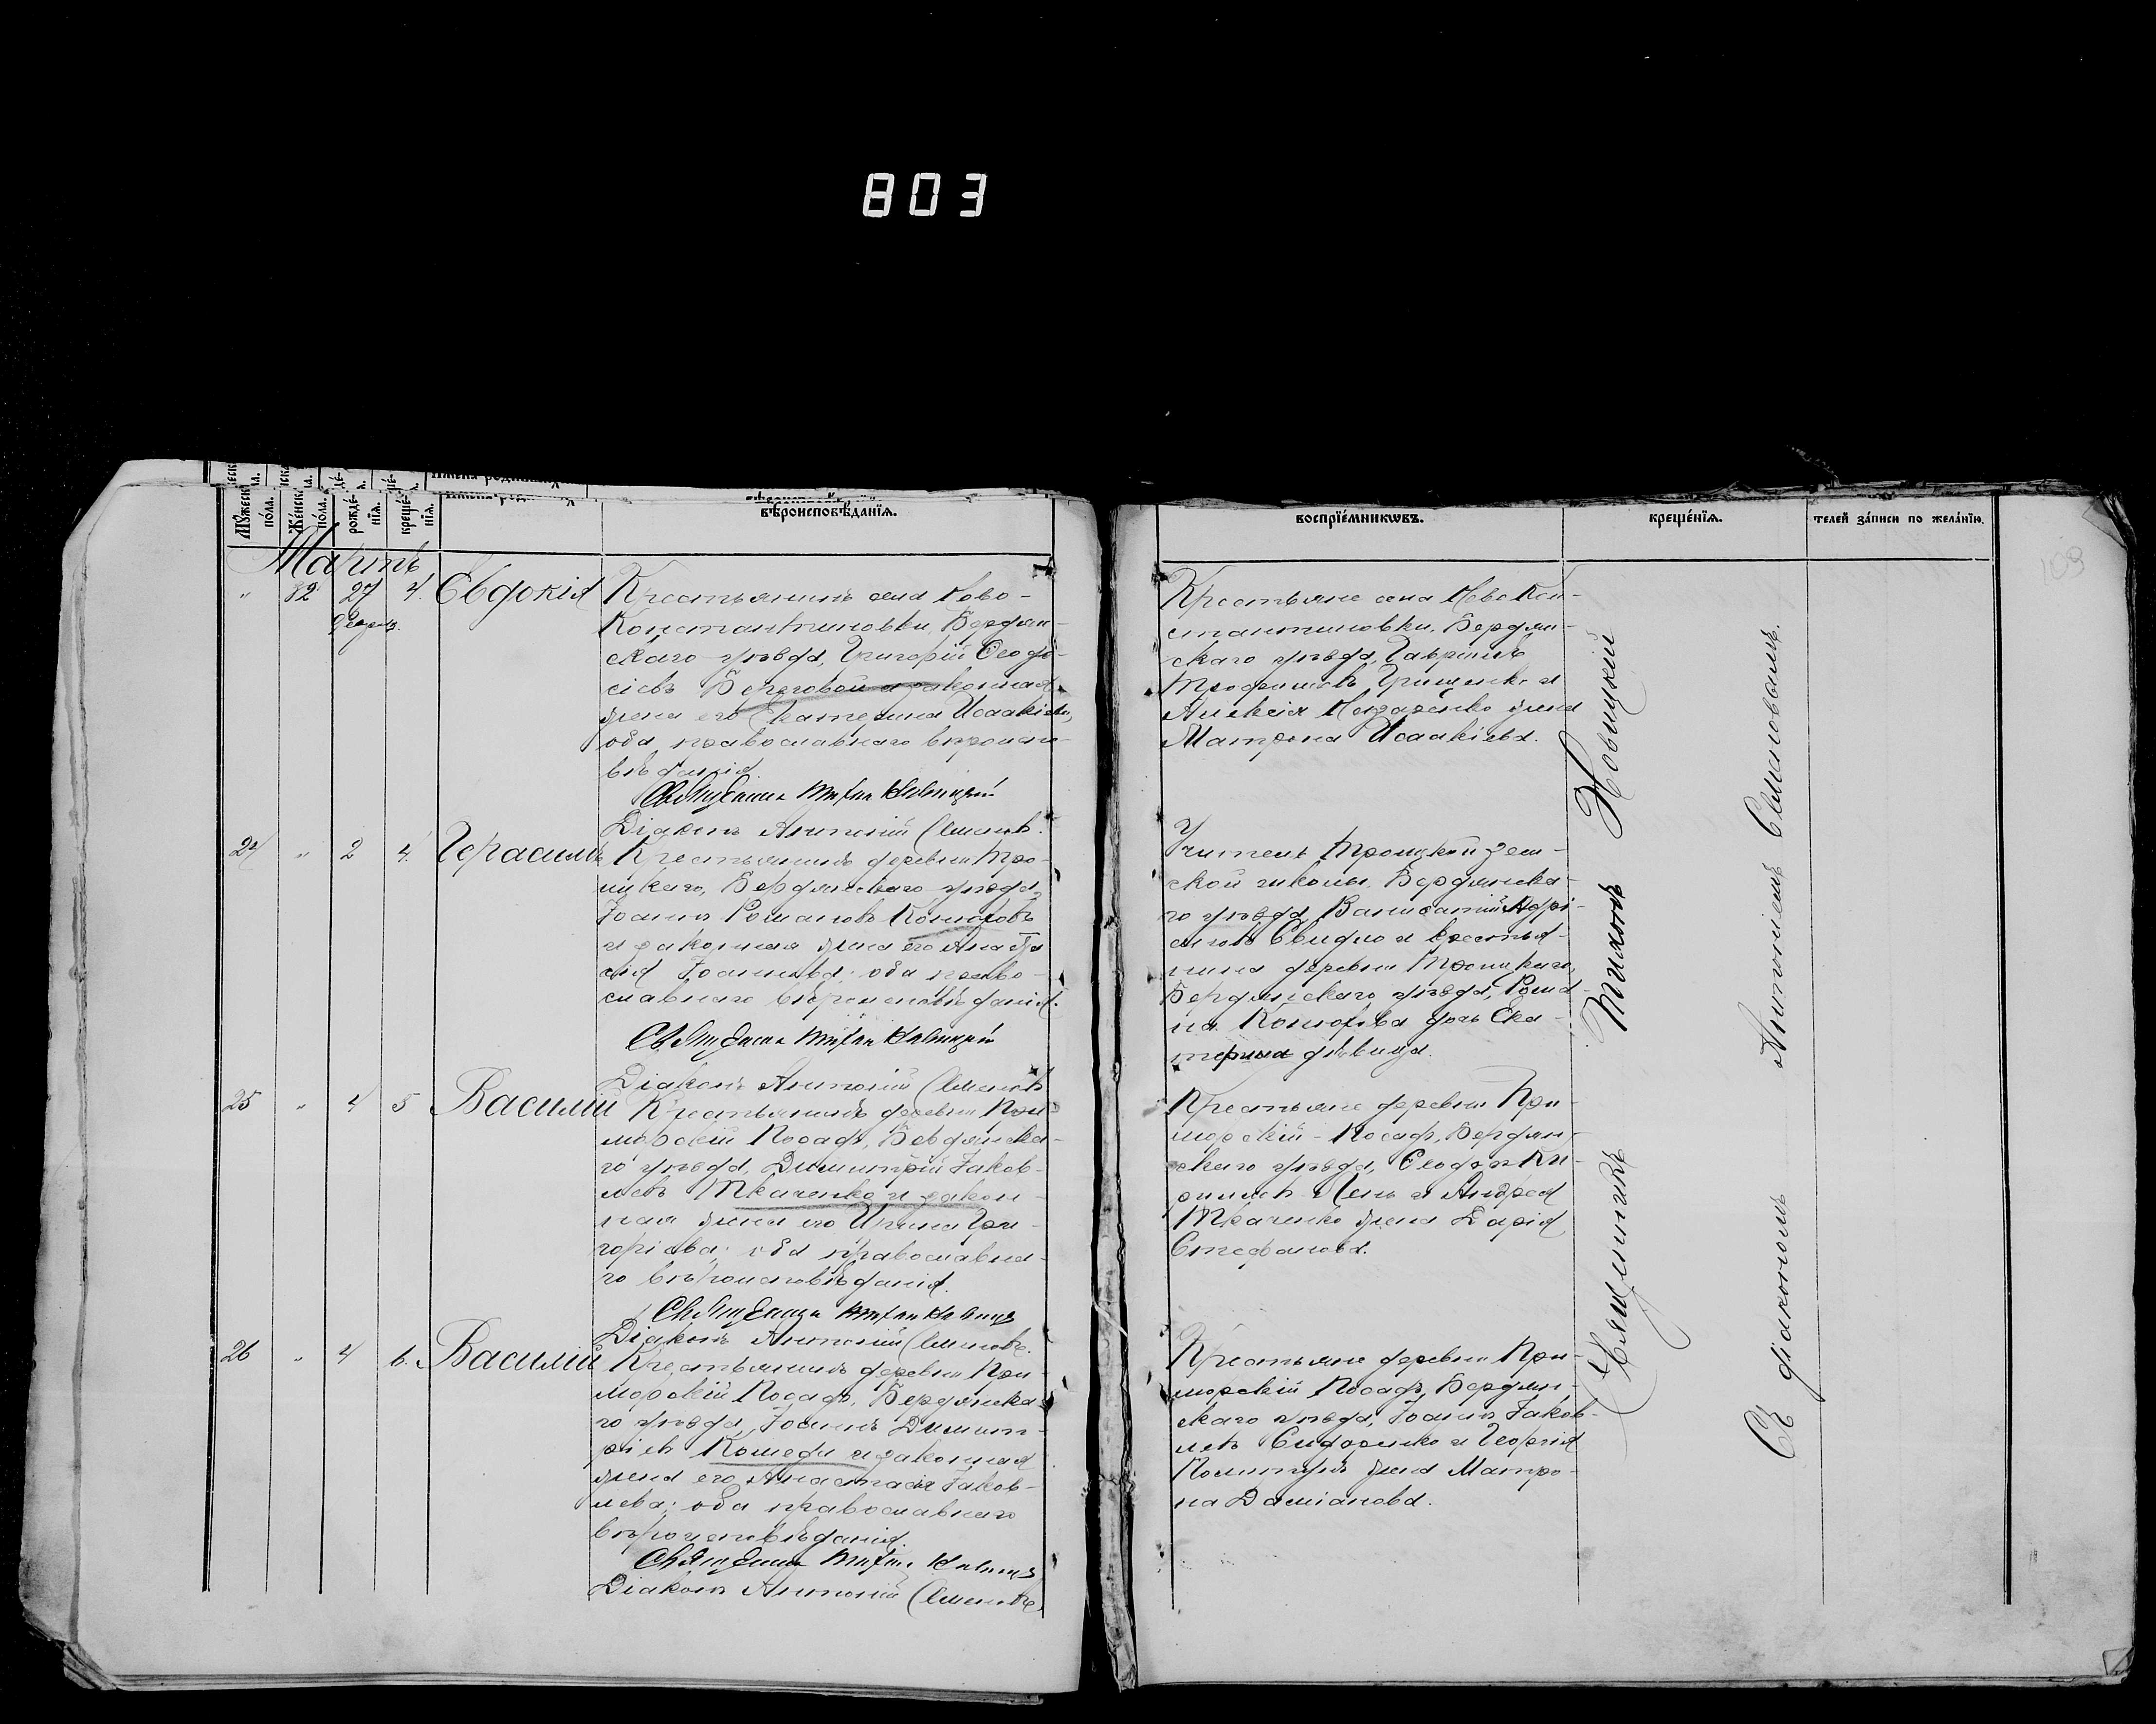 803
Мꙋжеск.
по́ла.
Же́нска.
по́ла.
рожде́-
нїѧ.
креще́-
нїѧ.
вѣроисповѣ́данїѧ.
Мартъ
" 82 27 4. Евдокія
Февр.
Крестьянинъ села Ново-
Константиновки, Бердян-
скаго уѣзда, Григорій Ѳеодо-
сіевъ Береговой и законная
жена его Екатерина Исаакіева,
оба православнаго вѣроиспо-
вѣданія.
Священникъ Тихонъ Новицкій
Діаконъ Антоній Семеновъ.
24 " 2 4. Герасимъ
Крестьянинъ деревни Тро-
ицкаго, Бердянскаго уѣзда,
Іоаннъ Романовъ
и законная жена его Анаста
сія Іоаннова; оба право-
славнаго вѣроисповѣданія.
Священникъ Тихонъ Новицкій
Діаконъ Антоній Семеновъ
25 " 4 5 Василій
Крестьянинъ деревни При-
морскій Посадъ, Бердянска-
го уѣзда, Димитрій Іаков-
левъ Ткаченко и закон-
ная жена его Ирина Гри-
горіева; оба православна-
го вѣроисповѣданія.
Священникъ Тихонъ Новицкій
Діаконъ Антоній Семеновъ.
26 " 4 6. Василій
Крестьянинъ деревни При-
морскій Посадъ, Бердянска-
го уѣзда, Іоаннъ Димит-
ріевъ и законная
жена его Анастасія Іаков-
лева; оба православнаго
вѣроисповѣданія.
Священникъ Тихонъ Новицкій
Діаконъ Антоній Семеновъ
воспрїе́мникѡвъ.
креще́нїѧ.
телей за́писи по жела́нїю.
109
Крестьяне села Ново Кон-
стантиновки, Бердян-
скаго уѣзда, Гавріилъ
Трофимовъ Грищенко и
Алексія Назаренко жена
Матрона Исаакіева.
Учитель Троицкой зем-
ской школы, Бердянска-
го уѣзда
и крестья-
нина деревни Троицкаго,
Бердянскаго уѣзда, Рома-
на дочь Ека-
терина дѣвица.
Крестьяне деревни При-
морскій-Посадъ, Бердян-
скаго уѣзда, Ѳеодоръ Ки-
рилловъ и Андрея
Ткаченко жена Дарія
Стефанова.
Крестьяне деревни При-
морскій Посадъ, Бердян-
скаго уѣзда, Іоаннъ Іаков-
левъ Сидоренко и Георгія
жена Матро-
на Даміанова.
Священникъ Тихонъ Новицкій
Съ діакономъ Антоніемъ Семеновымъ.